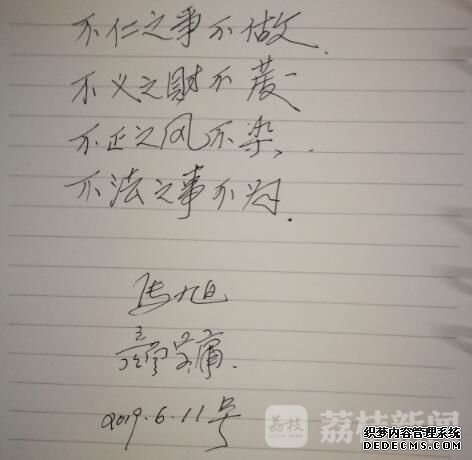 不仁之事不做
不义之财不
不正之风不染、.
不法之事不为.
张旭
2019.6.11号
荔枝
荔枝新闻
织梦内容管理系统
DEDECMS.COM